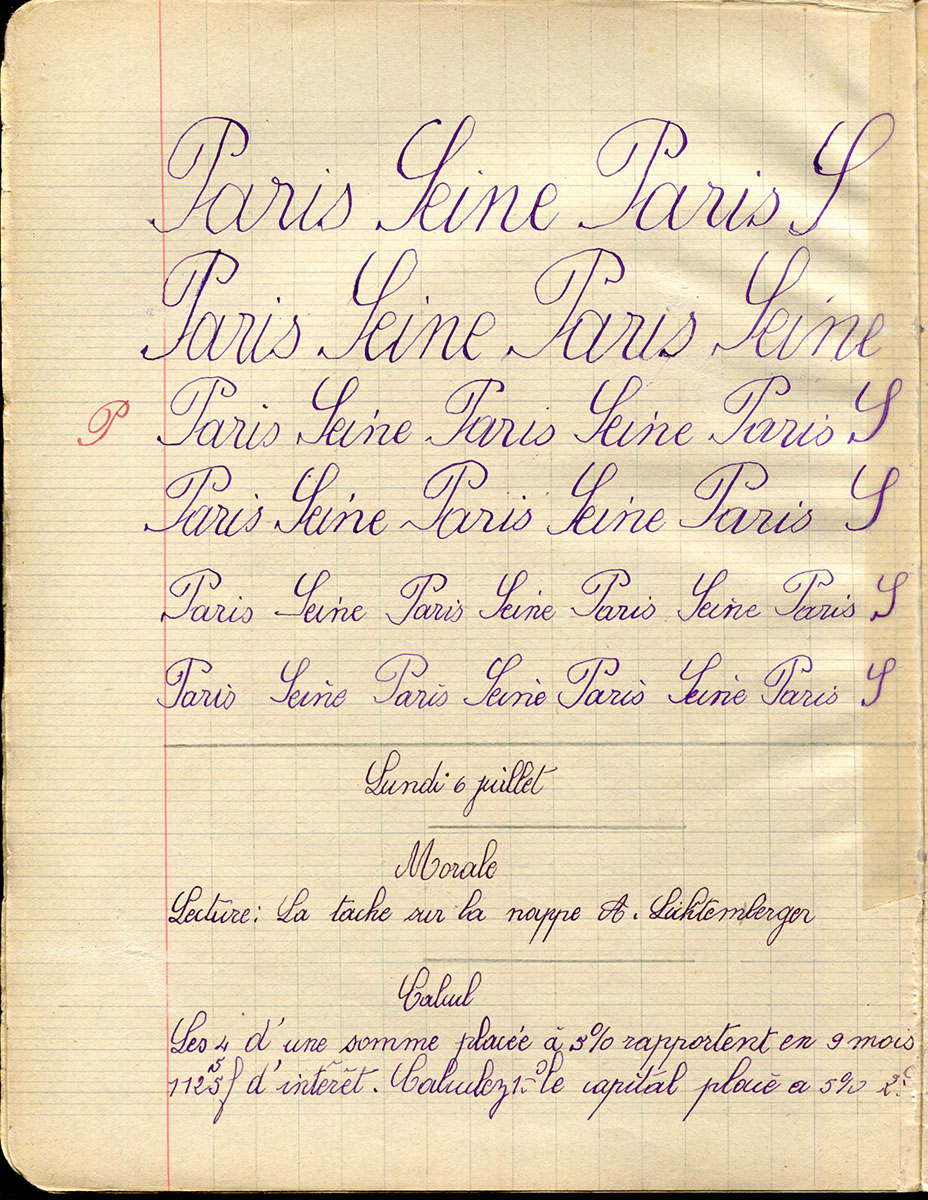 Paris Seine Paris S
Paris Seine Paris Seine
P Paris Seine Paris Seine Paris S
Paris Seine Paris Seine Paris S
Paris Seine Paris Seine Paris Seine Paris S
Paris Seine Paris Seine Paris Seine Paris S
Lundi 6 juillet
Morale
Lecture: La tache sur la nappe A. Lichtemberger
Calcul
Les 4/5 d'une somme placée à 5% rapportent en 9 mois
1125f d'intérêt. Calculez 1º le capital placé a 5% 2º